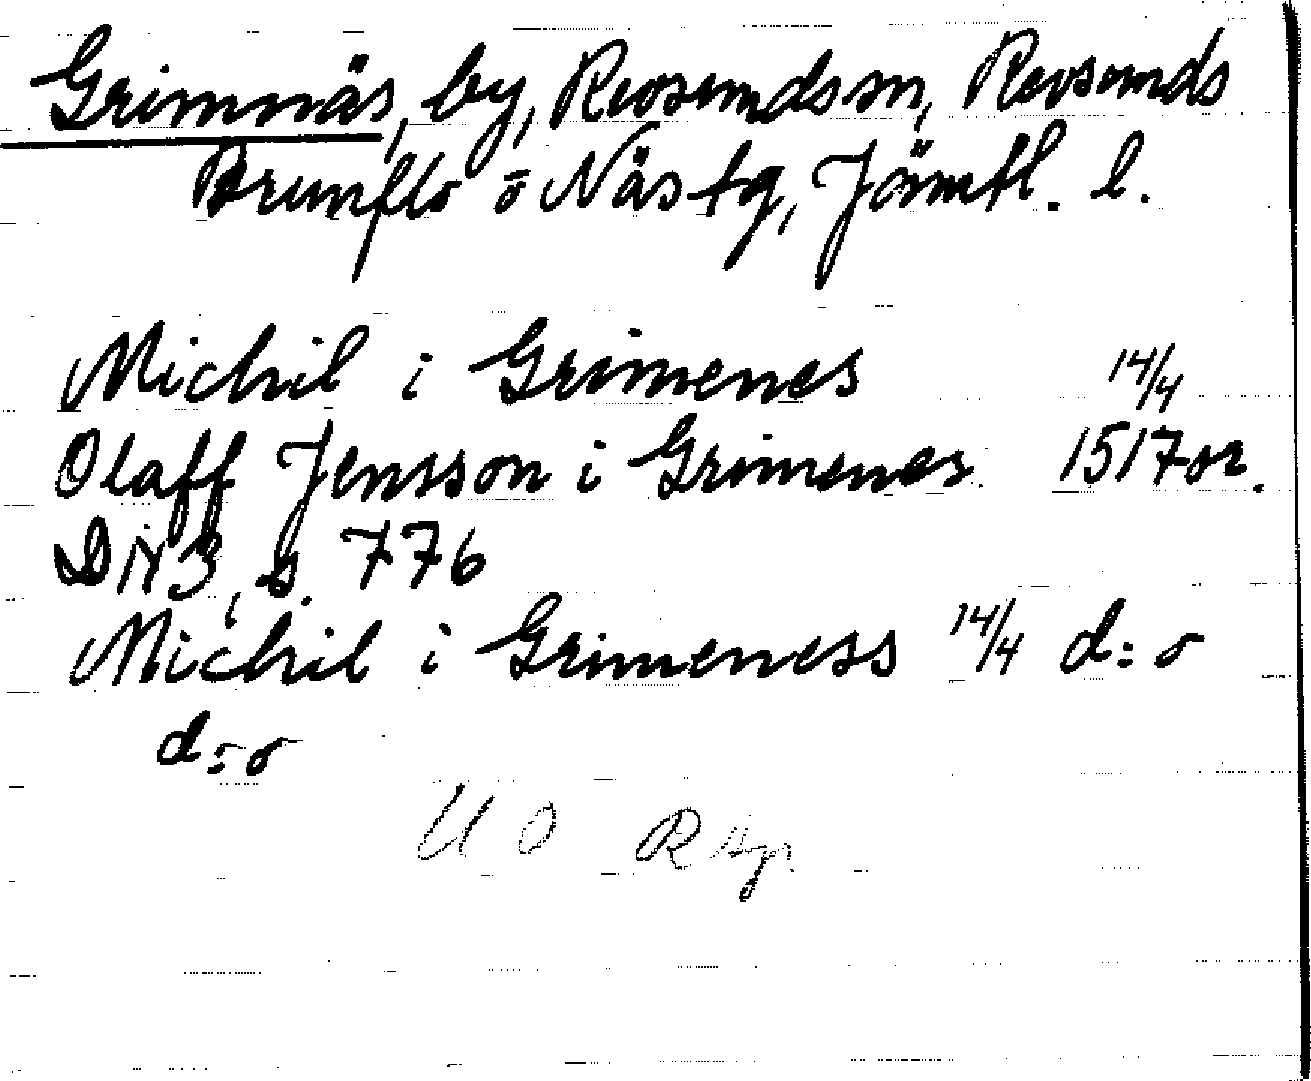 Grimnäs, by, Revsunds sn, Revsunds
Brunflo o Näs tg, Jämtl. l.
Michil i Grimenes 14/4
Olaff Jensson i Grimenes 1517 or.
DN 3, s. 776
Michil i Grimeness 14/4 d:o
d:o
U O